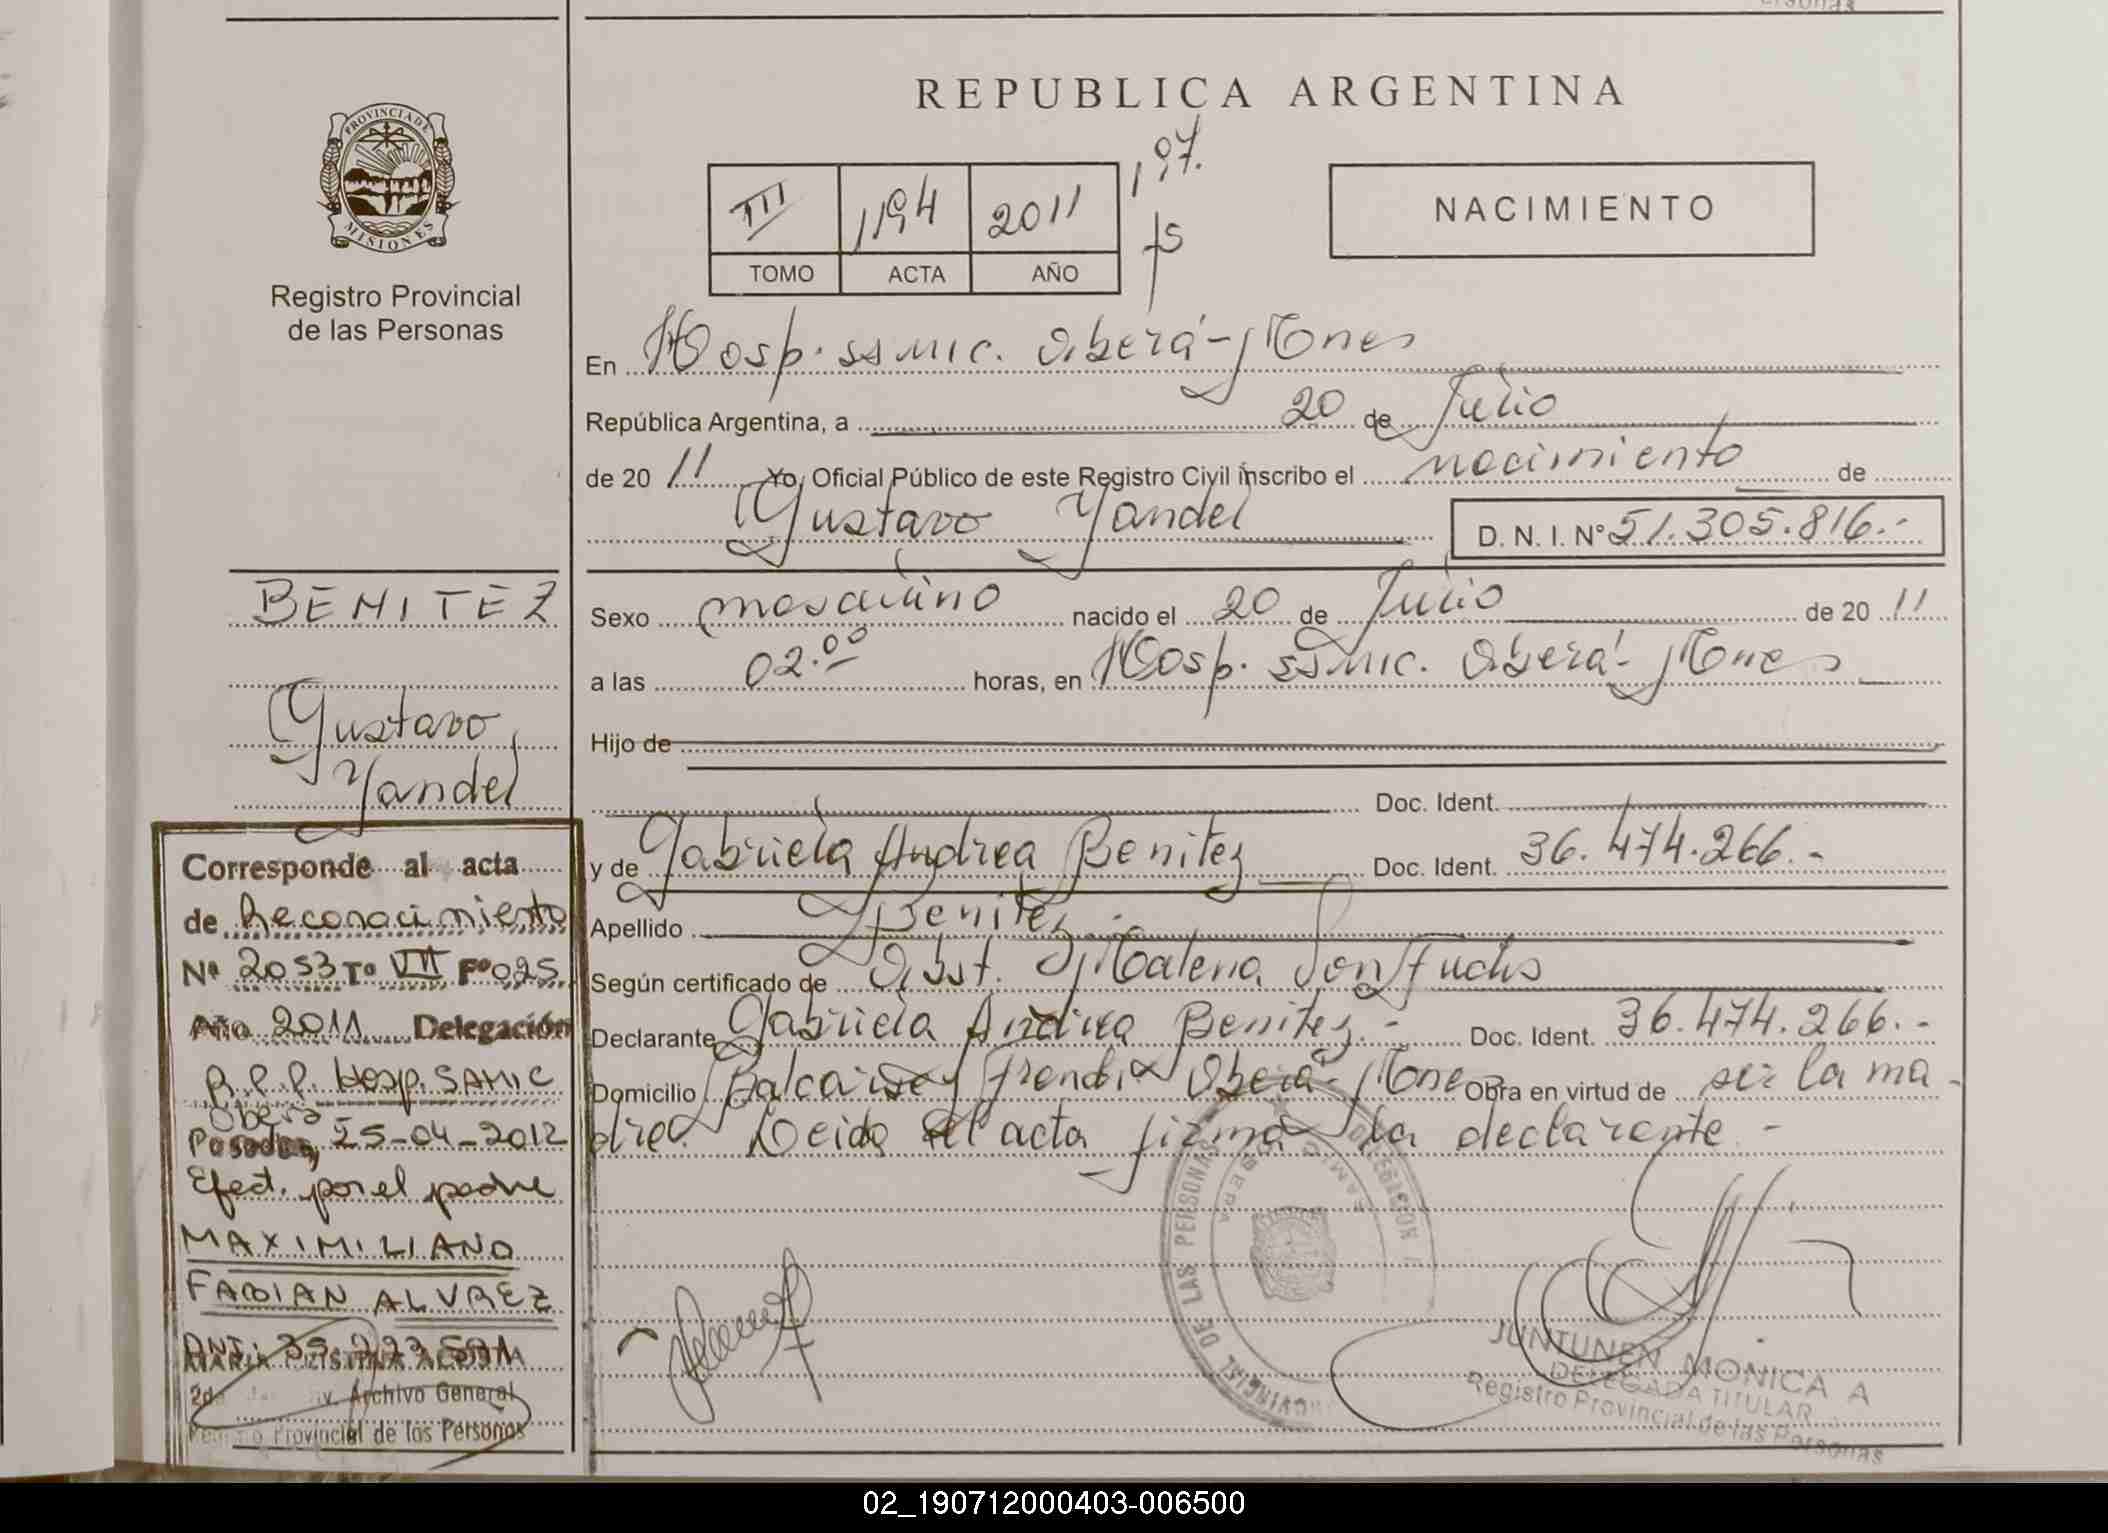 REPUBLICA ARGENTINA
PROVINCIA DE
MISIONES
Registro Provincial
de las Personas
III 1194 2011
TOMO ACTA AÑO
197.
fs
NACIMIENTO
En Hosp. ssmic. Oberá - Mnes
República Argentina, a 20 de Julio
de 20 11 Yo, Oficial Público de este Registro Civil inscribo el nacimiento de
Gustavo Yandel D. N. I. Nº 51.305.816.-
BENITEZ
Gustavo
Yandel
Sexo masculino nacido el 20 de Julio de 20 11
a las 02.00 horas, en Hosp. ssmic. Oberá - Mnes
Hijo de
Doc. Ident.
y de Gabriela Andrea Benitez Doc. Ident. 36.474.266.-
Apellido Benitez.-
Según certificado de Obst. Malena Fuchs
Declarante Gabriela Andrea Benitez.- Doc. Ident. 36.474.266.-
Domicilio Balcarse y Oberá - Mnes Obra en virtud de ser la ma-
dre. Leida el acta firma la declarante.-
Corresponde al acta
de Reconocimiento
Nº 2053 Tº VII Fº 025
Año 2011 Delegación
R.P.P. Hosp. SAMIC
Oberá
Posadas, 25-04-2012
Efect. por el padre
MAXIMILIANO
FABIAN ALVREZ
DNI:
MARIA CRISTINA
Archivo General
Registro Provincial de las Personas
PROVINCIAL DE LAS PERSONAS
DELEGACION
SAMIC OBERA
JUNTUNEN MONICA A
DELEGADA TITULAR
Registro Provincial de las Personas
02_190712000403-006500